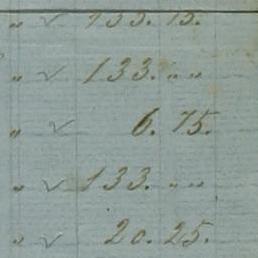 " ✓ 133. 15.
" ✓ 133. " "
" ✓ 6. 75.
" ✓ 133. " "
" ✓ 20. 25.